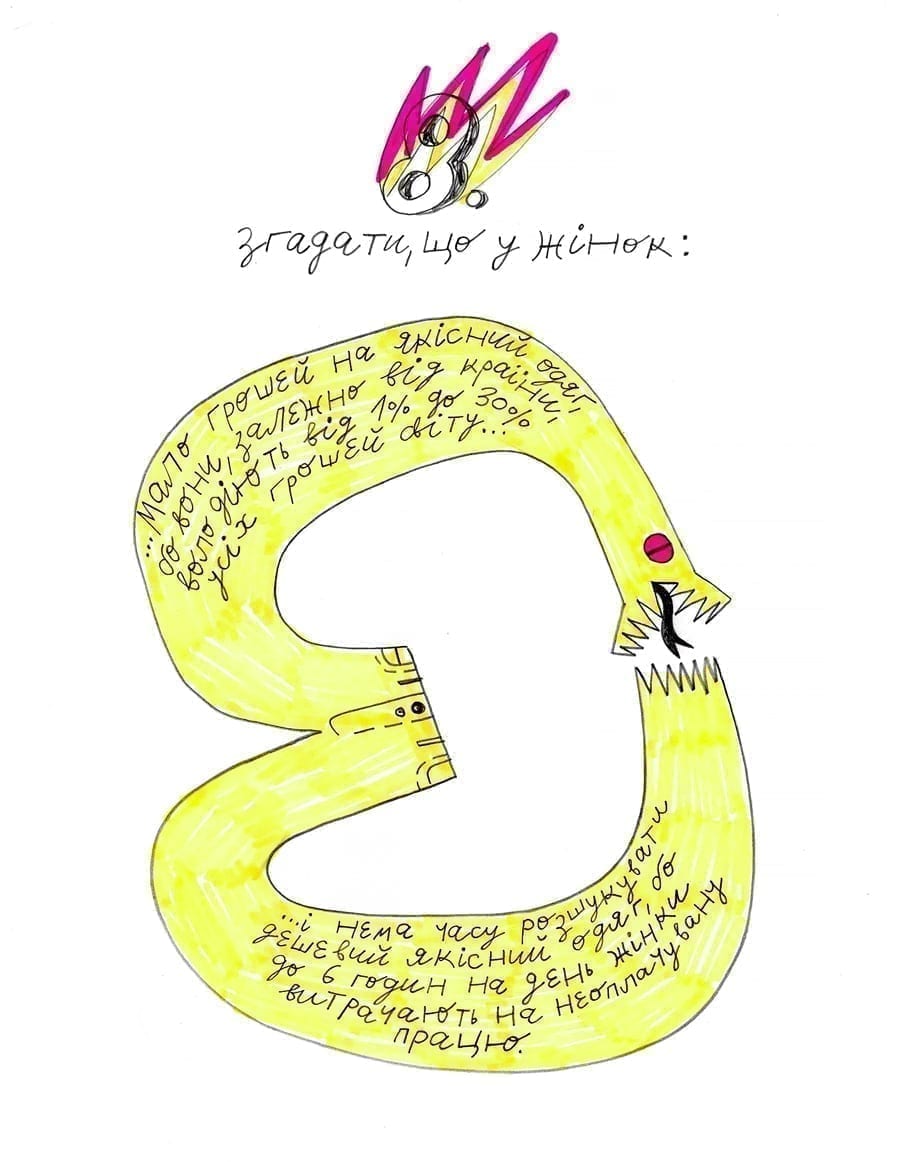 8.
згадати, що у жінок:
...Мало грошей на якісний одяг,
бо вони, залежно від країни,
володіють від 1% до 30%
усіх грошей світу...
...і нема часу розшукувати
дешевий якісний одяг, бо
до 6 годин на день жінки
витрачають на неоплачувану
працю.